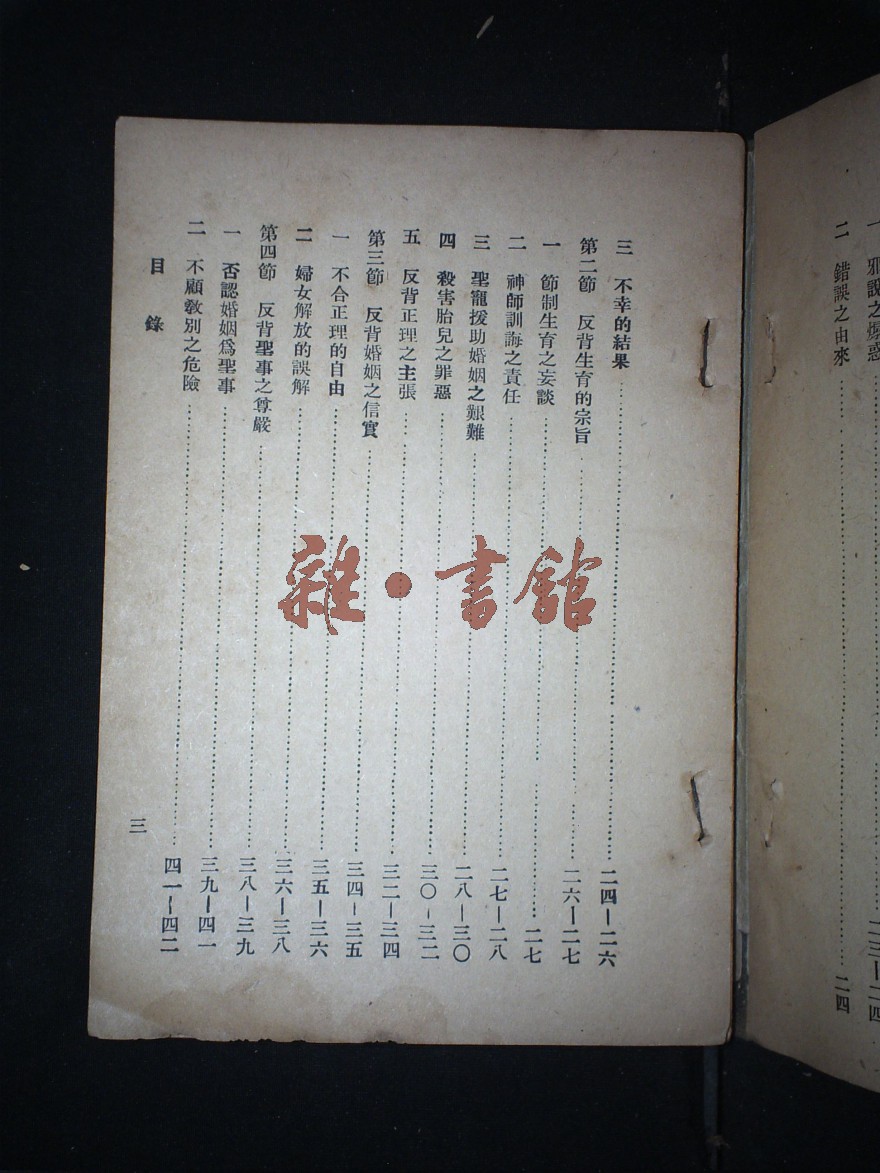 一 邪說之煽惑……二三—二四
二 錯誤之由來……二四
三 不幸的結果……二四—二六
第二節 反背生育的宗旨……二六—二七
一 節制生育之妄談……二七
二 神師訓誨之責任……二七—二八
三 聖寵援助婚姻之艱難……二八—三〇
四 殺害胎兒之罪惡……三〇—三二
五 反背正理之主張……三二—三四
第三節 反背婚姻之信實……三四—三五
一 不合正理的自由……三五—三六
二 婦女解放的誤解……三六—三八
第四節 反背聖事之尊嚴……三八—三九
一 否認婚姻爲聖事……三九—四一
二 不顧敎別之危險……四一—四二
目錄
三
雜·書館